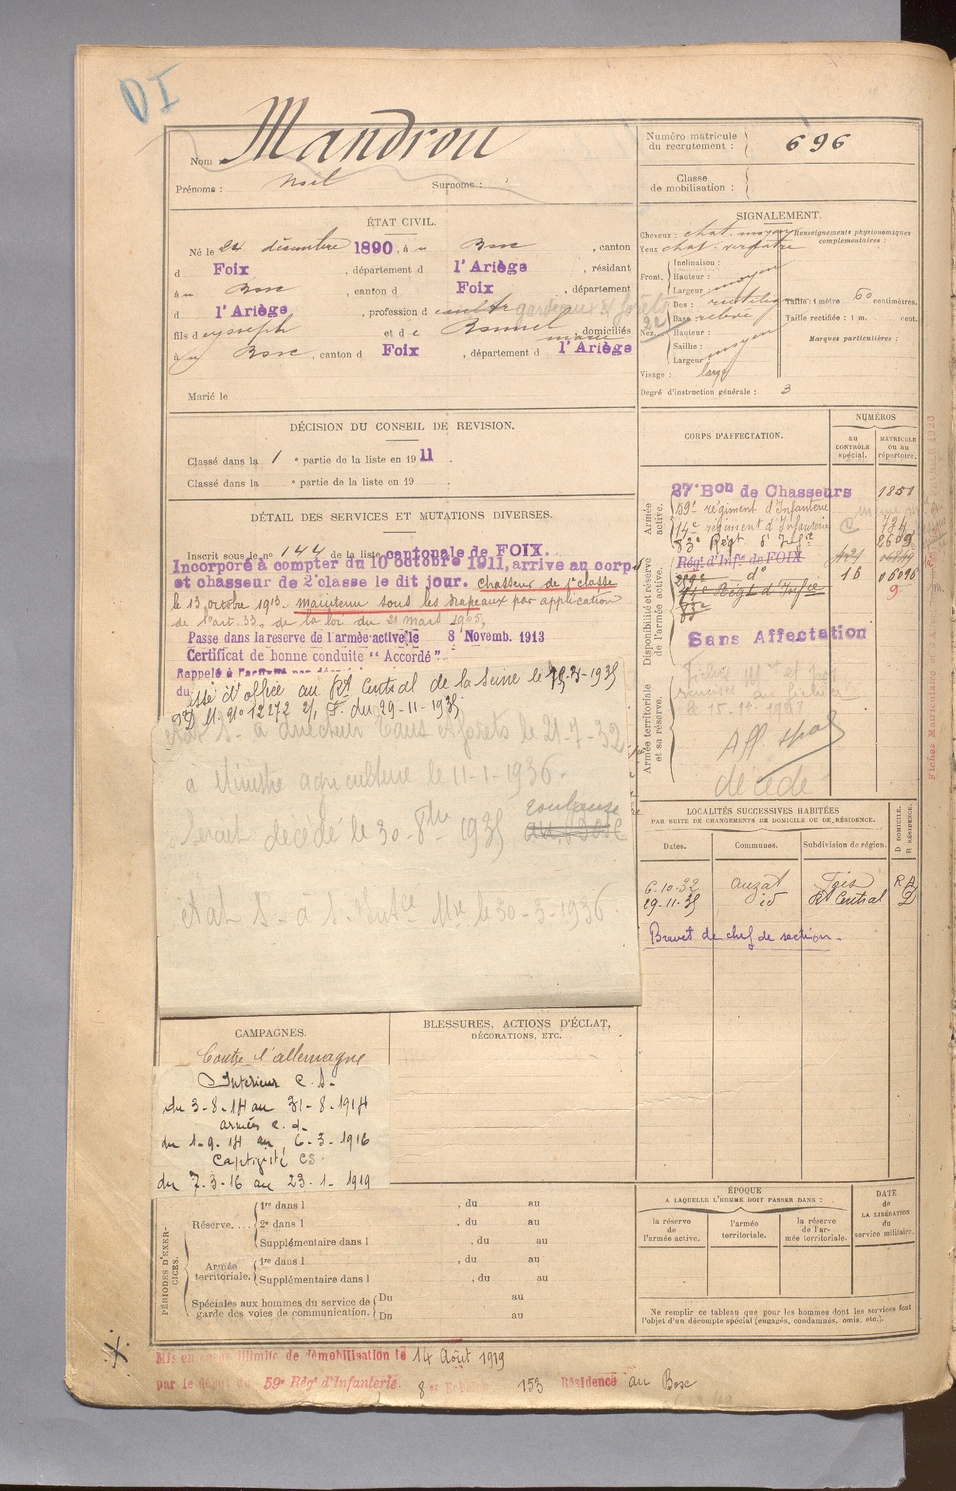 DI
Nom Mandrou
Prénoms : Noel Surnoms :
Numéro matricule du recrutement : 696
Classe de mobilisation :
ÉTAT CIVIL.
Né le 24 décembre 1890, à u Bosc , canton
d Foix , département d l'Ariège , résidant
à u Bosc , canton d Foix , département
d l'Ariège , profession d cultr garde eaux & forets
fils d e Joseph et d e Bonnel marie , domiciliés
à u Bosc , canton d Foix , département d l'Ariège
Marié le
SIGNALEMENT.
Cheveux : chat. moyen
Yeux chat. verdâtre
Renseignements physionomiques complémentaires :
Front, Inclinaison :
Hauteur : moyen
Largeur
Nez, Dos : rectiligne
Base relevé
Hauteur :
Saillie : moyen
Largeur
Visage : large
Taille : 1 mètre 60 centimètres.
Taille rectifiée : 1 m. cent.
Marques particulières :
Degré d'instruction générale : 3
DÉCISION DU CONSEIL DE REVISION.
Classé dans la 1 e partie de la liste en 1911 .
Classé dans la e partie de la liste en 19 .
DÉTAIL DES SERVICES ET MUTATIONS DIVERSES.
Inscrit sous le no 144 de la liste cantonale de FOIX.
Incorporé à compter du 10 octobre 1911, arrive au corps
et chasseur de 2e classe le dit jour. chasseur de 1e classe
le 13 octobre 1913. maintenu sous les drapeaux par application
de l'art. 33, de la loi du 21 mars 1905,
Passe dans la reserve de l'armée active le 8 Novemb. 1913
Certificat de bonne conduite " Accordé "
Rappelé à l'activité
du
d'office au Rt Central de la Seine le
12272 du 29-11-1935
Etat S. à directeur Eaux et forêts le 21-7-32
à Ministre agriculture le 11-1-1936.
décédé le 30-8bre 1935 au Bosc toulouse
Etat S. le 30-3-1936.
CORPS D'AFFECTATION.
NUMÉROS
AU CONTRÔLE spécial.
MATRICULE ou au répertoire.
Armée active.
27e Bon de Chasseurs 1851
59e régiment d'Infanterie
14e régiment d'Infanterie 734
83e Régt d'Infie 2609
Disponibilité et réserve de l'armée active.
Régt d'Infie de FOIX
do 16
14e Régt d'Infie 9
Sans Affectation
Armée territoriale et sa réserve.
Fiches Mle et
Aff spale
décédé
LOCALITÉS SUCCESSIVES HABITÉES
PAR SUITE DE CHANGEMENTS DE DOMICILE OU DE RÉSIDENCE.
D DOMICILE.
R RÉSIDENCE.
Dates. Communes. Subdivision de région.
6-10-32 Auzat Foix R
29-11-35 id Rt Central D
Brevet de chef de section.
CAMPAGNES.
Contre l'allemagne
Intérieur C.S.
du 3-8-14 au 31-8-1914
armées c. d.
du 1-9-14 au 6-3-1916
Captivité CS.
du 7-3-16 au 23-1-1919
BLESSURES, ACTIONS D'ÉCLAT,
DÉCORATIONS, ETC.
PÉRIODES D'EXERCICES.
Réserve.... 1re dans l , du au
2e dans l , du au
Supplémentaire dans l , du au
Armée territoriale. 1re dans l , du au
Supplémentaire dans l , du au
Spéciales aux hommes du service de garde des voies de communication. Du au
Du au
ÉPOQUE
A LAQUELLE L'HOMME DOIT PASSER DANS :
la réserve de l'armée active.
l'armée territoriale.
la réserve de l'armée territoriale.
DATE de LA LIBÉRATION du service militaire.
Ne remplir ce tableau que pour les hommes dont les services font
l'objet d'un décompte spécial (engagés, condamnés, omis, etc.).
Mis en congé illimité de démobilisation le 14 Août 1919
par le dépôt du 59e Rég. d'Infanterie. 8e Echelon 153 Résidence au Bosc